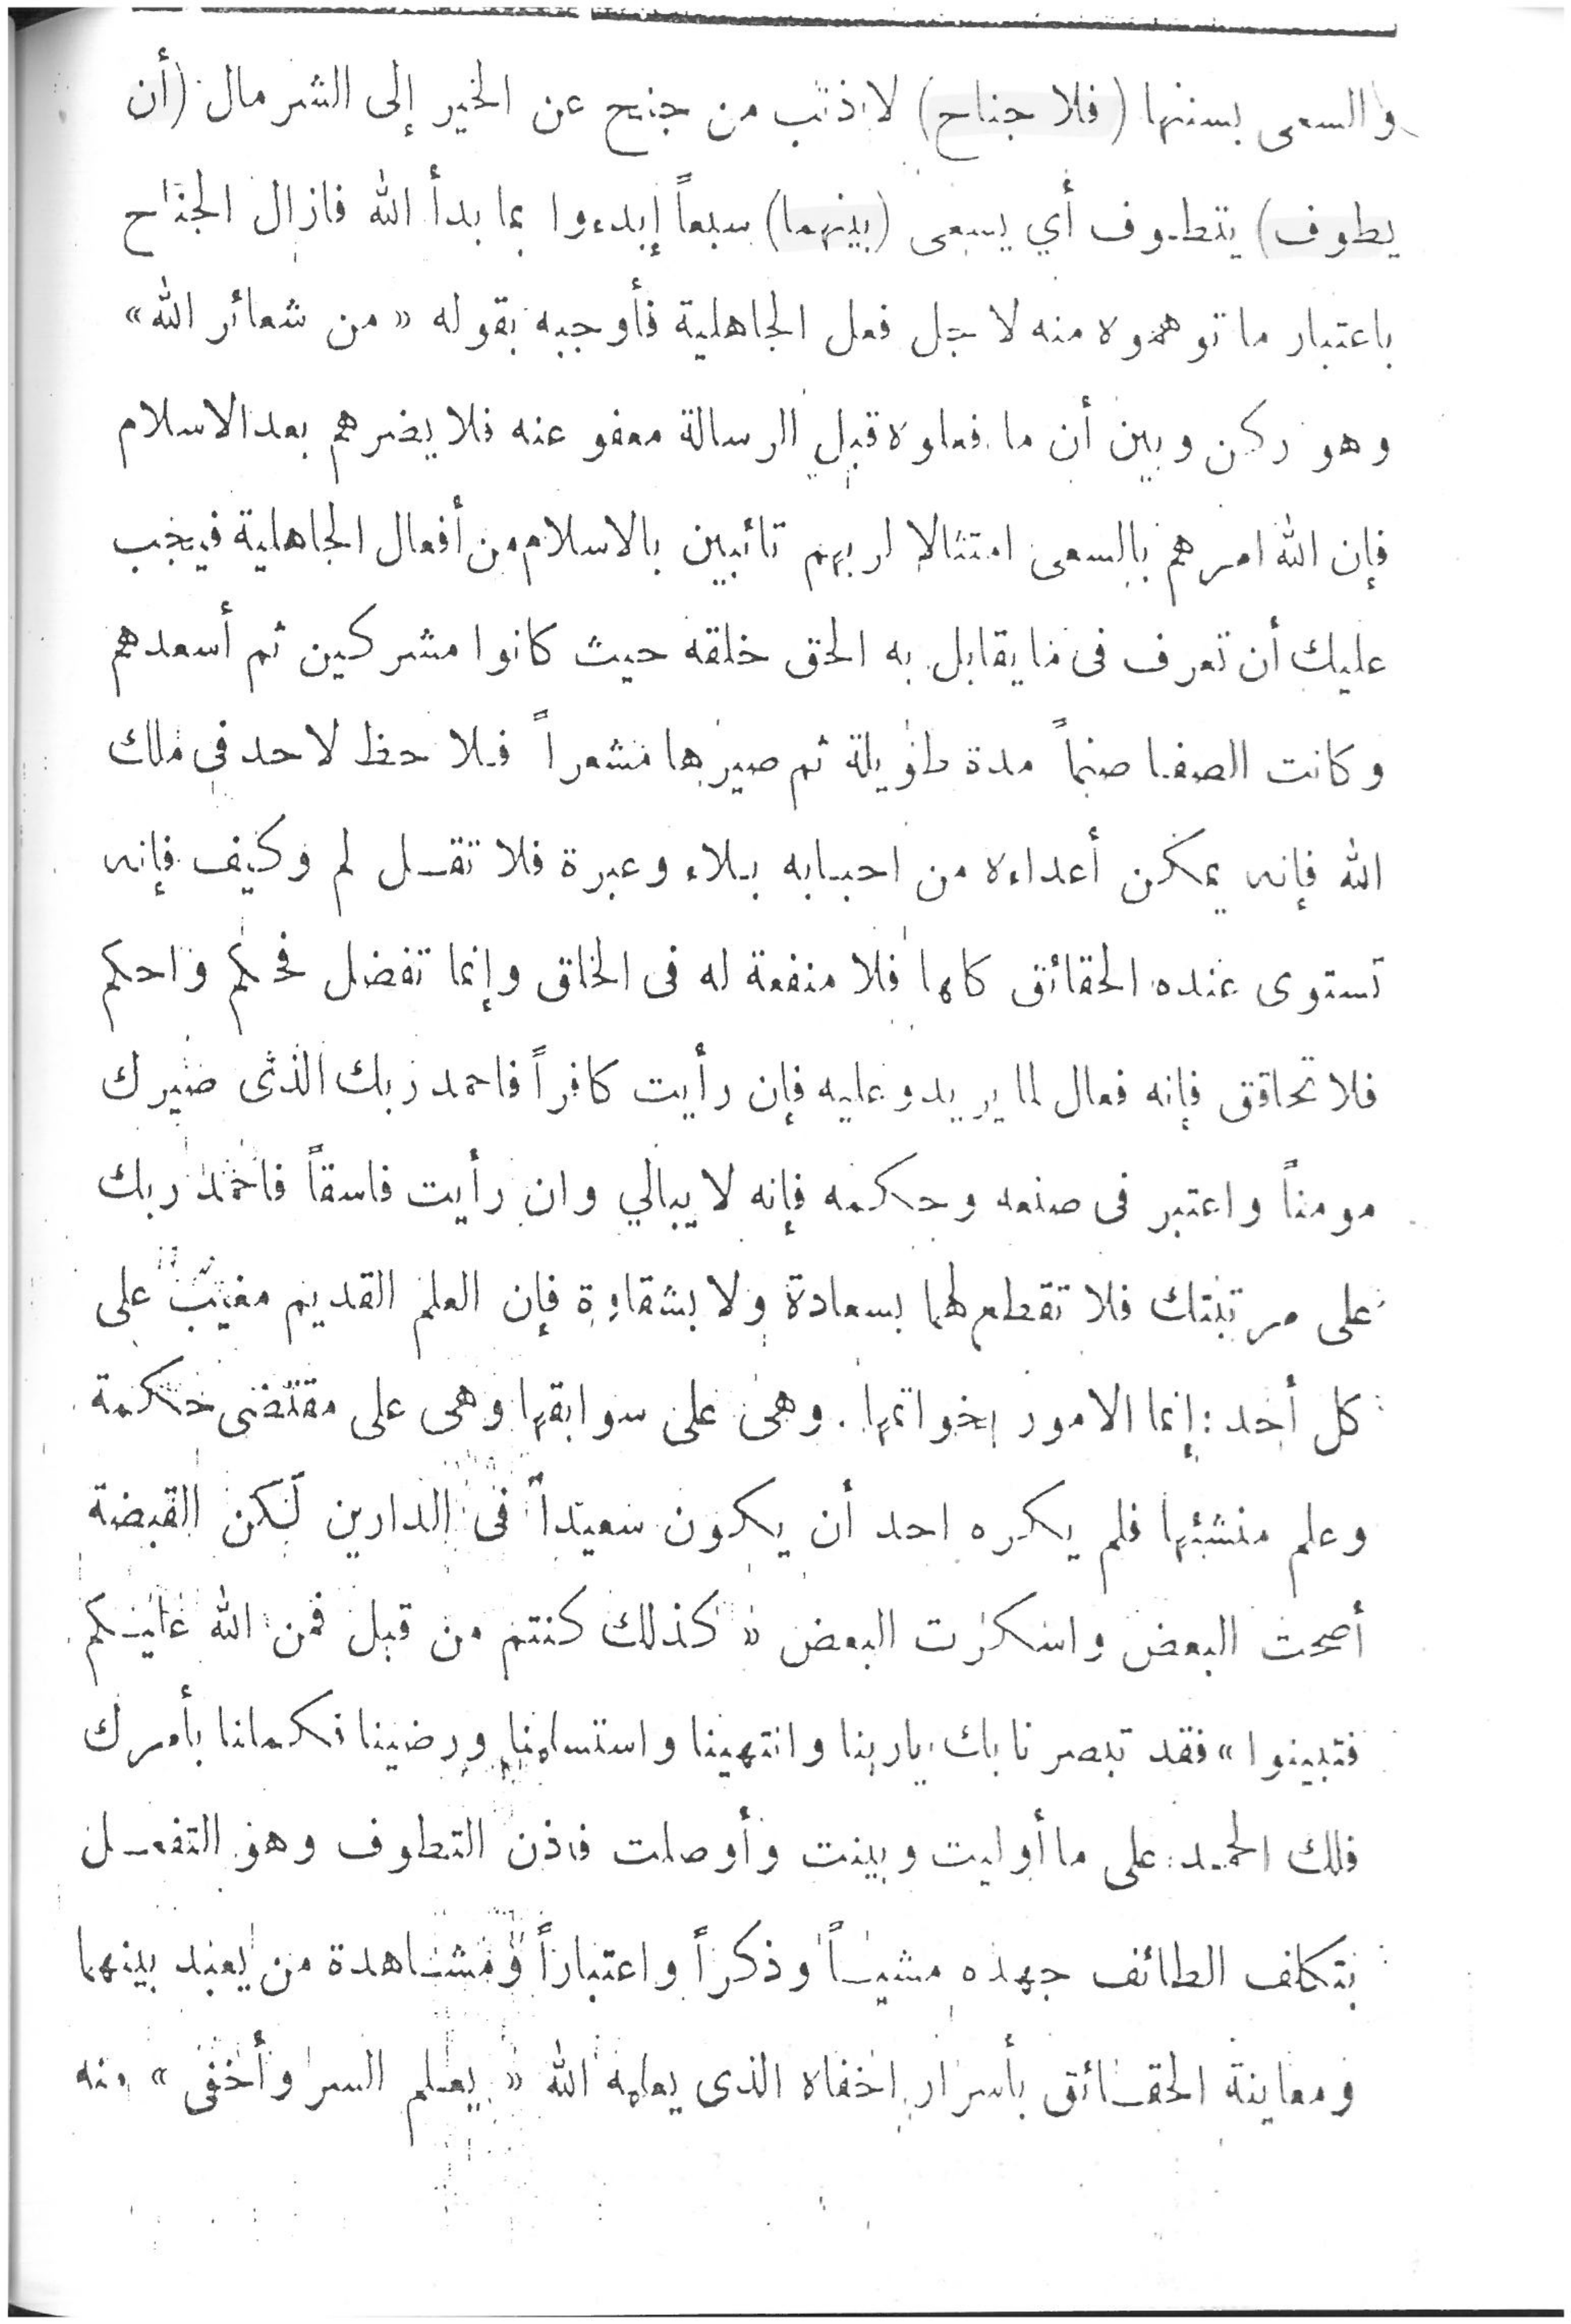 والسعى بسننها (فلا جناح) لا ذنب من جنح عن الخير إلى الشر مال (أن
يطوف) يتطوف أي يسعى (بينهما) سبعاً إبدءوا بما بدأ الله فازال الجناح
باعتبار ما توهموه منه لاجل فعل الجاهلية فأوجبه بقوله «من شعائر الله»
وهو ركن وبين أن ما فعلوه قبل الرسالة معفو عنه فلا يضرهم بعد الاسلام
فإن الله امرهم بالسعى امتثالا لربهم تائبين بالاسلام من أفعال الجاهلية فيجب
عليك أن تعرف فى ما يقابل به الحق خلقه حيث كانوا مشركين ثم أسعدهم
وكانت الصفا صنماً مدة طويلة ثم صيرها مشعراً فلا حظ لاحد فى ملك
الله فإنه يمكن أعداءه من احبابه بلاء وعبرة فلا تقل لم وكيف فإنه
تستوى عنده الحقائق كلها فلا منفعة له فى الخلق وإنما تفضل فحكم واحكم
فلا تحاقق فإنه فعال لما يريد وعليه فإن رأيت كافراً فاحمد ربك الذى صيرك
مومناً واعتبر فى صنعه وحكمه فإنه لا يبالي وان رأيت فاسقاً فاحمد ربك
على مرتبتك فلا تقطع لهما بسعادة ولا بشقاوة فإن العلم القديم مغيب على
كل أحد : إنما الامور بخواتمها . وهى على سوابقها وهى على مقتضى حكمة
وعلم منشئها فلم يكره احد أن يكون سعيداً فى الدارين لكن القبضة
أصحت البعض واسكرت البعض «كذلك كنتم من قبل فمن الله عليكم
فتبينوا» فقد تبصرنا بك ياربنا وانتهينا واستسلمنا ورضينا فكملنا بأمرك
فلك الحمد على ما أوليت وبينت وأوصلت فاذن التطوف وهو التفعل
بتكلف الطائف جهده مشياً وذكراً واعتباراً ومشاهدة من يعبد بينهما
ومعاينة الحقائق بأسرار اخفاه الذى يعلمه الله «يعلم السر وأخفى» منه